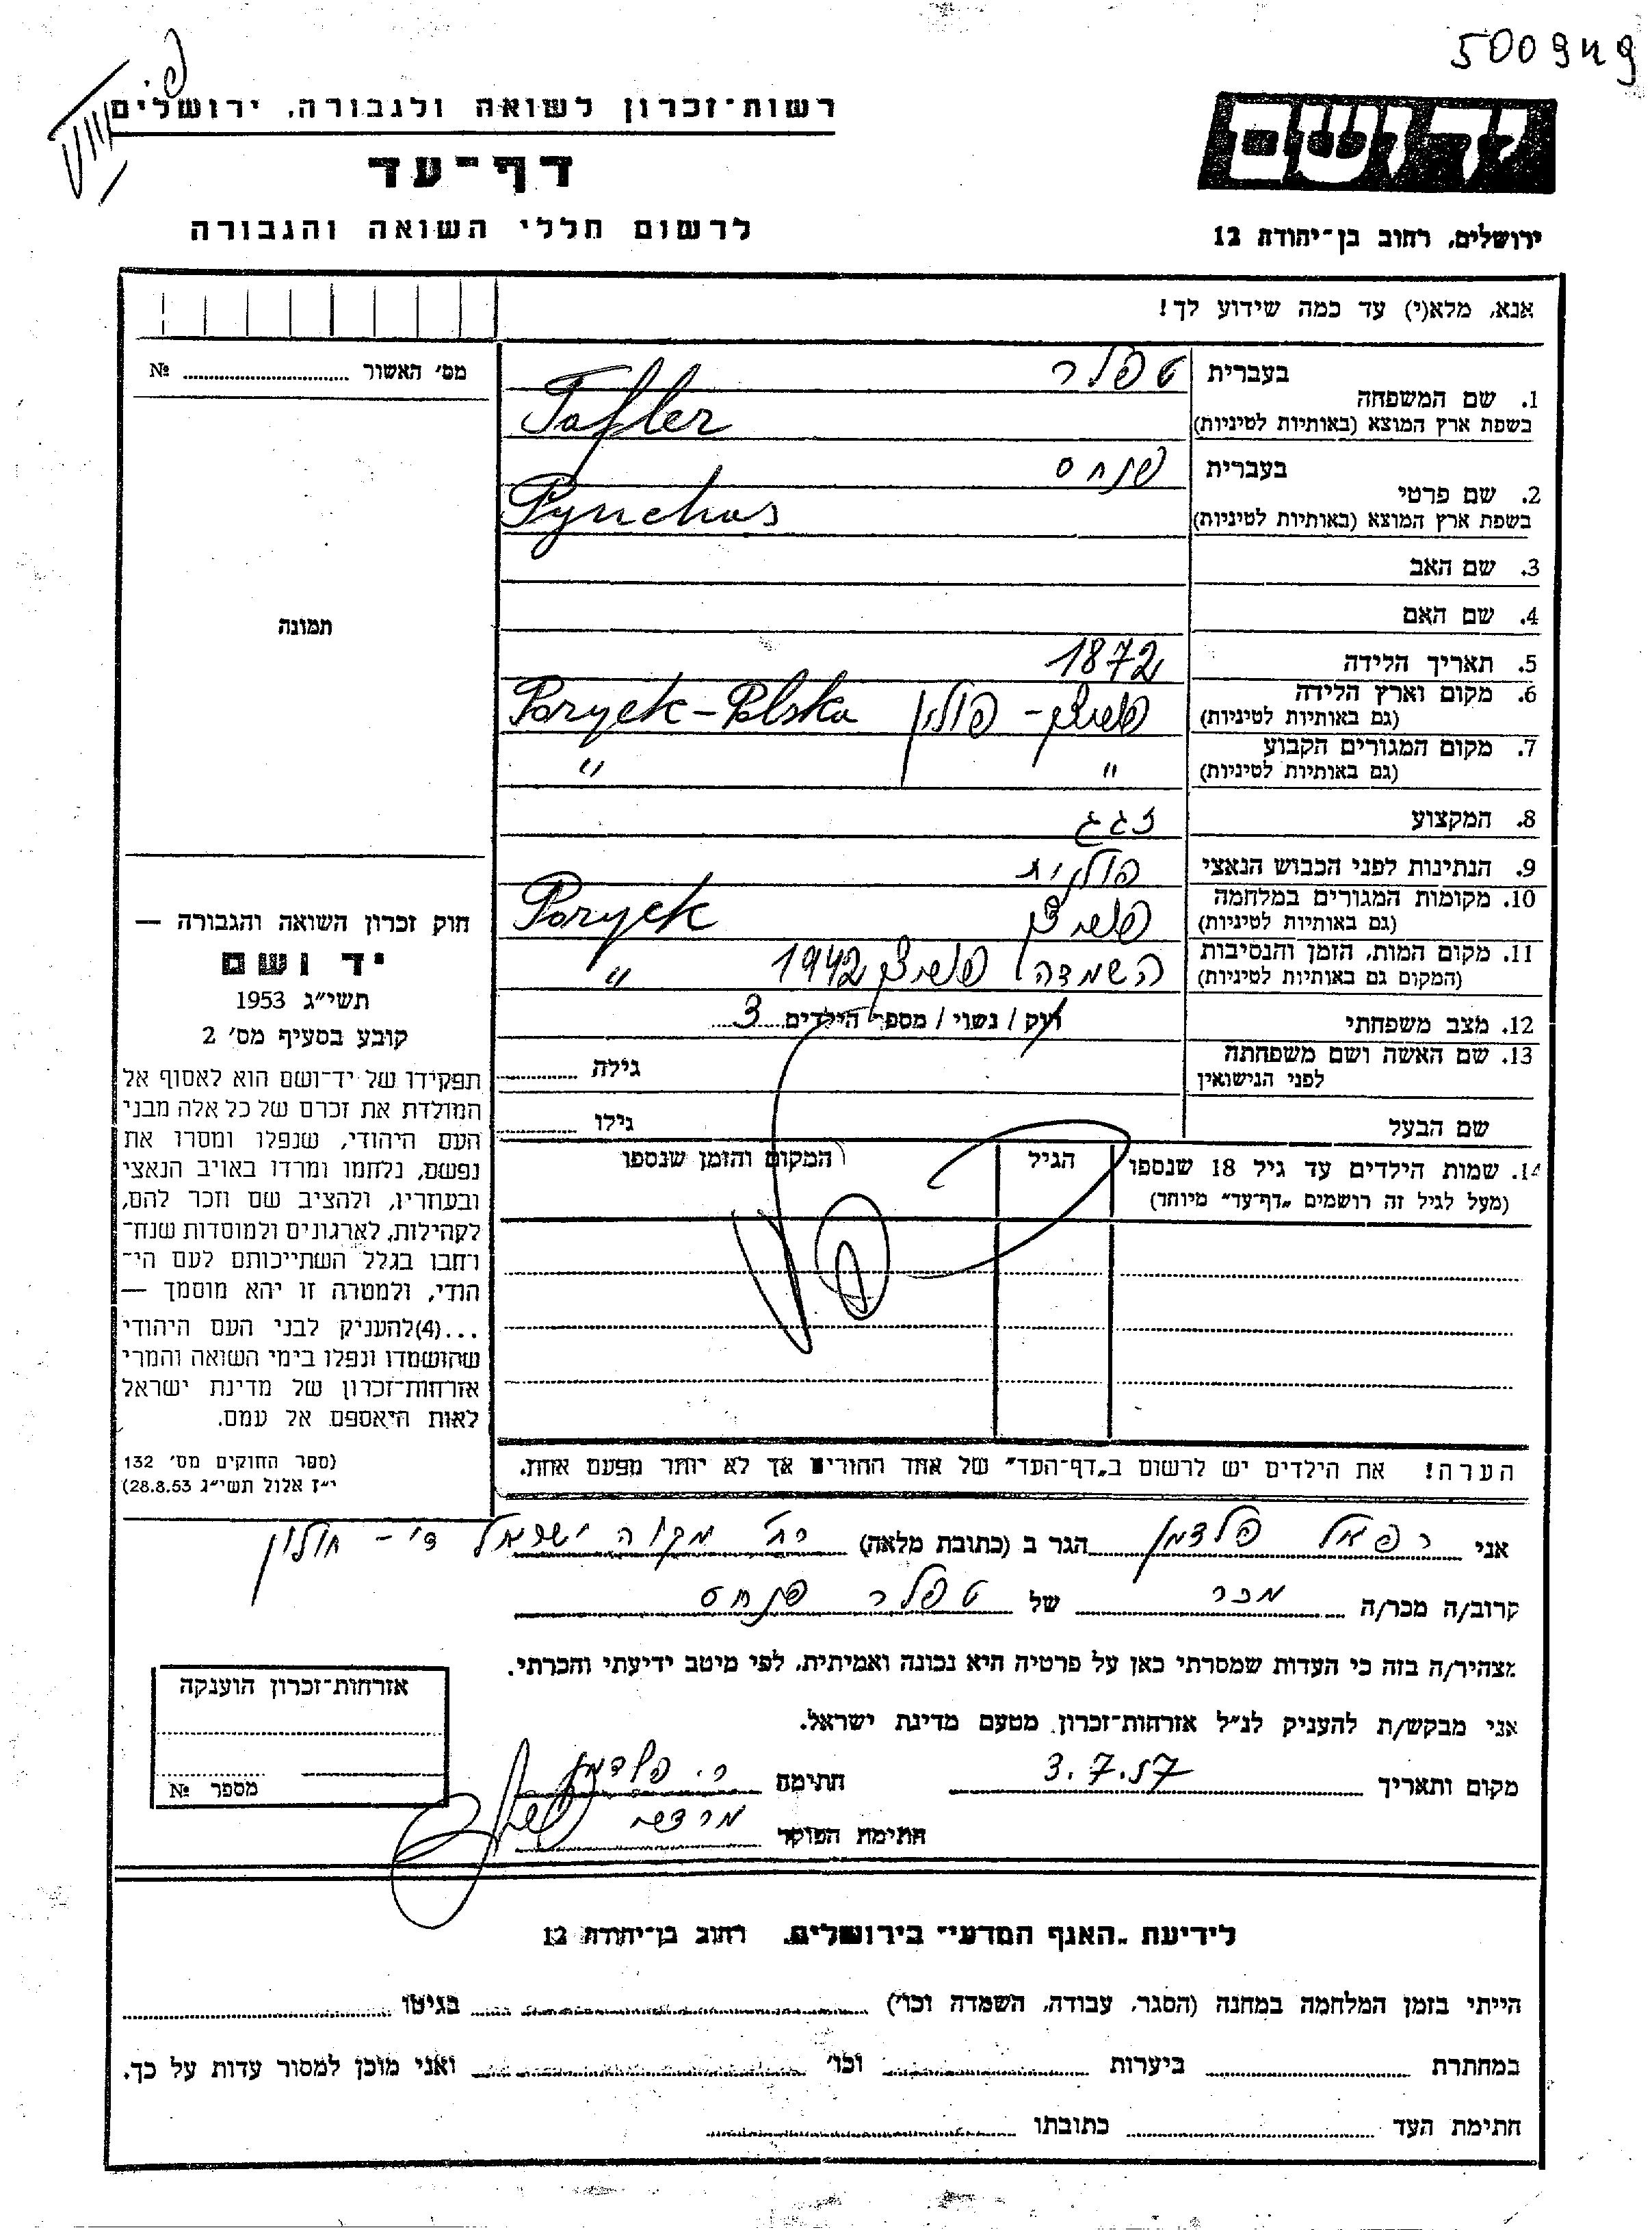 500949
פ.
רשות־זכרון לשואה ולגבורה, ירושלים
דף־עד
לרשום חללי השואה והגבורה
ידושם
ירושלים, רחוב בן־יהודה 12
אנא, מלא(י) עד כמה שידוע לך!
מס׳ האשור ........ №
תמונה
1. שם המשפחה
בעברית טפלר
בשפת ארץ המוצא (באותיות לטיניות) Tafler
2. שם פרטי
בעברית פנחס
בשפת ארץ המוצא (באותיות לטיניות) Pynchas
3. שם האב
4. שם האם
5. תאריך הלידה 1872
6. מקום וארץ הלידה
(גם באותיות לטיניות) פוריצק - פולין Poryck - Polska
7. מקום המגורים הקבוע
(גם באותיות לטיניות) " "
8. המקצוע זגג
9. הנתינות לפני הכבוש הנאצי פולנית
10. מקומות המגורים במלחמה
(גם באותיות לטיניות) פוריצק Poryck
11. מקום המות, הזמן והנסיבות
(המקום גם באותיות לטיניות) השמדה פוריצק 1942 "
12. מצב משפחתי רוק / נשוי / מספר הילדים 3
13. שם האשה ושם משפחתה
לפני הנישואין גילה ........
שם הבעל גילו ........
14. שמות הילדים עד גיל 18 שנספו הגיל המקום והזמן שנספו
(מעל לגיל זה רושמים „דף־עד" מיוחד)
הערה! את הילדים יש לרשום ב„דף־העד" של אחד ההורים אך לא יותר מפעם אחת.
חוק זכרון השואה והגבורה —
יד ושם
תשי״ג 1953
קובע בסעיף מס׳ 2
תפקידו של יד־ושם הוא לאסוף אל
המולדת את זכרם של כל אלה מבני
העם היהודי, שנפלו ומסרו את
נפשם, נלחמו ומרדו באויב הנאצי
ובעוזריו, ולהציב שם וזכר להם,
לקהילות, לארגונים ולמוסדות שנח־
רחבו בגלל השתייכותם לעם הי־
הודי, ולמטרה זו יהא מוסמך —
...(4)להעניק לבני העם היהודי
שהושמדו ונפלו בימי השואה והמרי
אזרחות־זכרון של מדינת ישראל
לאות היאספם אל עמם.
(ספר החוקים מס׳ 132
י״ז אלול תשי״ג 28.8.53)
אני רפאל פלדמן הגר ב (כתובת מלאה) רח׳ מקוה ישראל - חולון
קרוב/ה מכר/ה מכר של טפלר פנחס
מצהיר/ה בזה כי העדות שמסרתי כאן על פרטיה היא נכונה ואמיתית, לפי מיטב ידיעתי והכרתי.
אני מבקש/ת להעניק לנ״ל אזרחות־זכרון מטעם מדינת ישראל.
מקום ותאריך 3.7.57 חתימה ר. פלדמן
חתימת הפוקד
אזרחות־זכרון הוענקה
מספר №
לידיעת „האגף המדעי" בירושלים, רחוב בן־יהודה 12
הייתי בזמן המלחמה במחנה (הסגר, עבודה, השמדה וכו׳) ........ בגיטו ........
במחתרת ........ ביערות ........ וכו׳ ........ ואני מוכן למסור עדות על כך.
חתימת העד ........ כתובתו ........